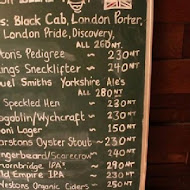 s: Black Cab, London Porter,
London Pride, Discovery,
ALL 260NT.
tons Pedigree ~ 230NT
kings Snecklifter ~ 240NT
uel Smiths Yorkshire Ale's
ALL 280NT
Speckled Hen ~ 290NT
bgoblin/Wychcraft ~ 250NT
oni Lager ~ 150NT
arstons Oyster Stout ~ 230NT
ingerbeard/Scarecrow ~ 240NT
hornbridge IPA ~ 290NT
ld Empire IPA ~ 230NT
Westons Organic Ciders ~ 250